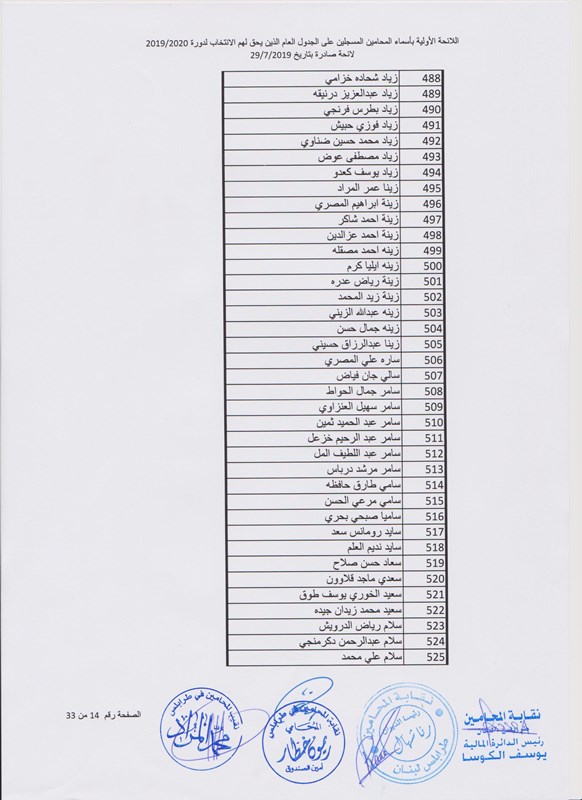 اللائحة الأولية بأسماء المحامين المسجلين على الجدول العام الذين يحق لهم الانتخاب لدورة 2019/2020
لائحة صادرة بتاريخ 29/7/2019
488 زياد شحاده خزامي
489 زياد عبدالعزيز درنيقه
490 زياد بطرس فرنجي
491 زياد فوزي حبيش
492 زياد محمد حسين ضناوي
493 زياد مصطفى عوض
494 زياد يوسف كعدو
495 زينا عمر المراد
496 زينة ابراهيم المصري
497 زينة احمد شاكر
498 زينة احمد عزالدين
499 زينه احمد مصقله
500 زينه ايليا كرم
501 زينة رياض عدره
502 زينة زيد المحمد
503 زينه عبدالله الزيني
504 زينه جمال حسن
505 زينا عبدالرزاق حسيني
506 ساره علي المصري
507 سالي جان فياض
508 سامر جمال الحواط
509 سامر سهيل العنزاوي
510 سامر عبد الحميد ثمين
511 سامر عبد الرحيم خزعل
512 سامر عبد اللطيف المل
513 سامر مرشد درباس
514 سامي طارق حافظه
515 سامي مرعي الحسن
516 ساميا صبحي بحري
517 سايد رومانس سعد
518 سايد نديم العلم
519 سعاد حسن صلاح
520 سعدي ماجد قلاوون
521 سعيد الخوري يوسف طوق
522 سعيد محمد زيدان جيده
523 سلام رياض الدرويش
524 سلام عبدالرحمن دكرمنجي
525 سلام علي محمد
نقابة المحامين
رئيس الدائرة المالية
يوسف الكوسا
نقابة المحامين
طرابلس لبنان
نقابة المحامين في طرابلس
المحامي
ريمون خطار
أمين الصندوق
نقابة المحامين في طرابلس
محمد المراد
الصفحة رقم 14 من 33